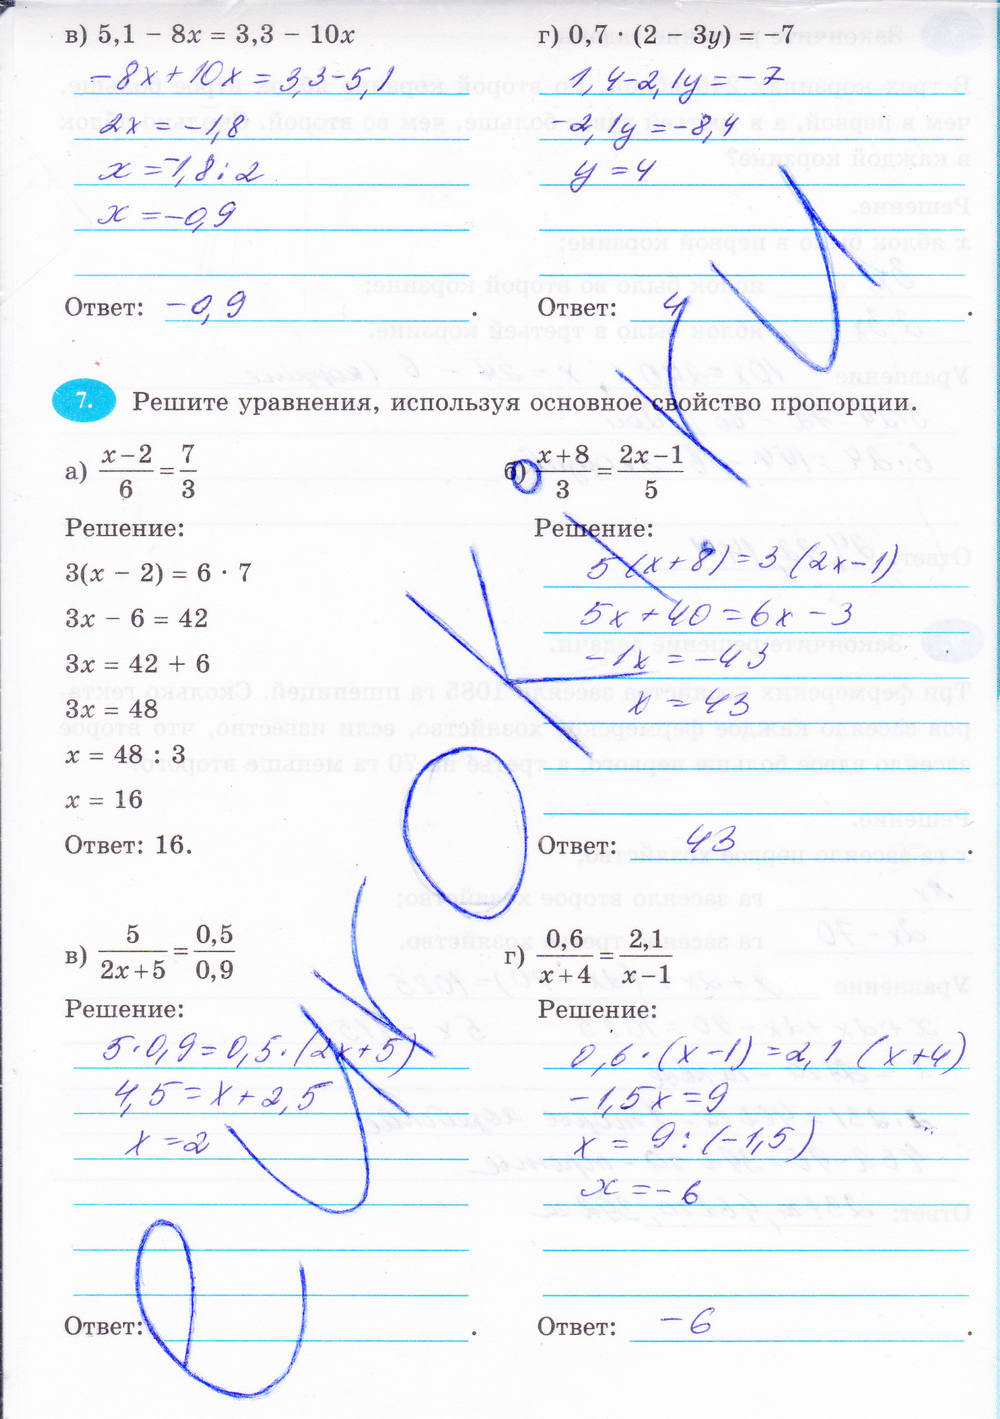 в) 5,1 − 8x = 3,3 − 10x
−8x+10x = 3,3−5,1
2x = −1,8
x = −1,8 : 2
x = −0,9
Ответ: −0,9.
г) 0,7 · (2 3y) = −7
1,4−2,1y = −7
−2,1y = −8,4
y = 4
Ответ: 4.
7. Решите уравнения, используя основное свойство пропорции.
а) (x−2)/6 = 7/3
Решение:
3(x − 2) = 6 · 7
3x − 6 = 42
3x = 42 + 6
3x = 48
x = 48 : 3
x = 16
Ответ: 16.
б) (x+8)/3 = (2x−1)/5
Решение:
5(x+8) = 3(2x−1)
5x+40 = 6x−3
−1x = −43
x = 43
Ответ: 43.
в) 5/(2x+5) = 0,5/0,9
Решение:
5·0,9 = 0,5·(2x+5)
4,5 = x+2,5
x = 2
Ответ: .
г) 0,6/(x+4) = 2,1/(x−1)
Решение:
0,6·(x−1) = 2,1(x+4)
−1,5x = 9
x = 9 : (−1,5)
x = −6
Ответ: −6.